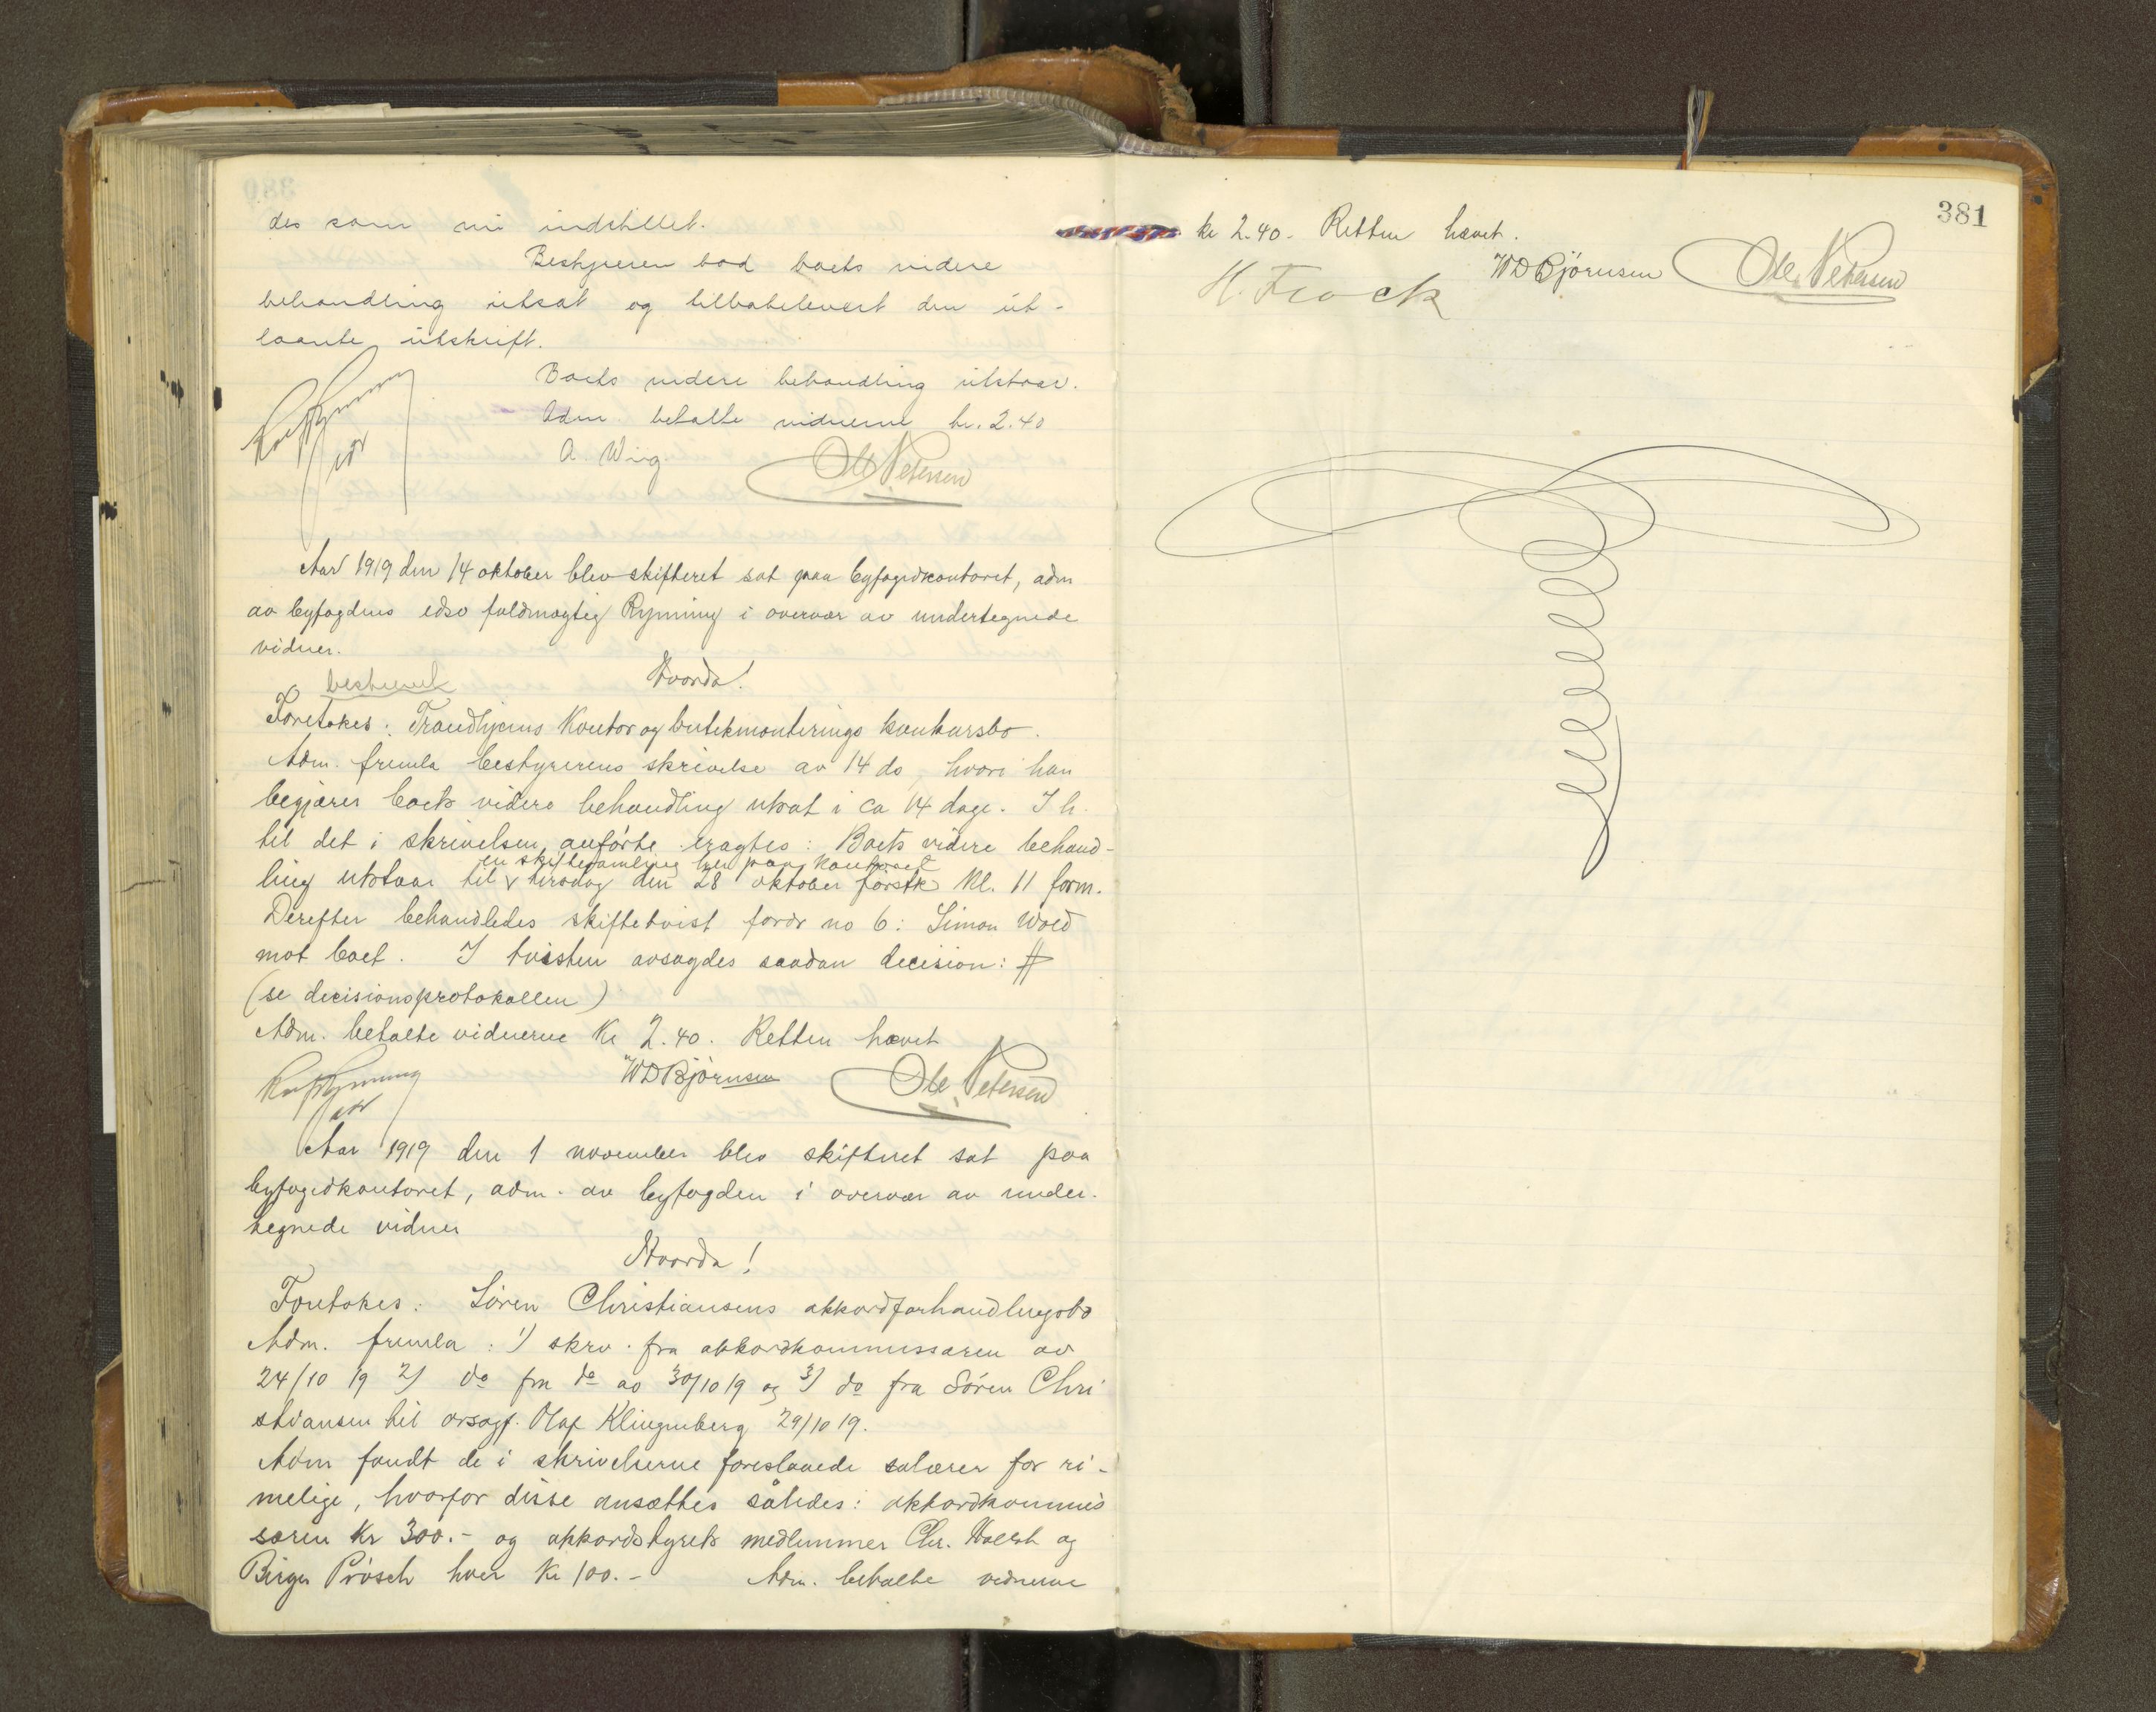 des som nu indstillet.
Bestyreren bad boets videre
behandling utsat og tilbakelevert den ut-
laante utskrift.
Boets videre behandling utstaar.
Adm. betalte vidnerne kr. 2.40
A. Wing. Ole Petersen
Aar 1919 den 14 oktober blev skifteret sat paa byfogdkontoret, adm
av byfogdens edsv fuldmægtig Rynning i overvær av undertegnede
vidner.
Hvorda!
Foretokes: Trondhjems Kontor og butikmonterings konkursbo.
Adm. fremla bestyrerens skrivelse av 14 ds, hvori han
begjærer boets videre behandling utsat i ca 14 dage. I h.
til det i skrivelsen anførte eragtes: Boets videre behand-
en skiftesamling her paa kontoret
ling utstaar til v tirsdag den 28 oktober førstk kl. 11 form.
Derefter behandledes skiftetvist fordr no 6: Simon Wold
mot boet. I tvisten avsagdes saadan decision: #
(se decisionsprotokollen)
Adm. betalte vidnerne Kr 2.40. Retten hævet
WD Bjørnsen Ole Petersen
Aar 1919 den 1 november blev skifteret sat paa
byfogedkontoret, adm. av byfogden i overvær av under-
tegnede vidner
Hvorda!
Foretokes: Søren Christiansens akkordforhandlingsbo
Adm. fremla: 1) skrv. fra akkordkommissæren av
24/10 19 2) do fra do av 30/10 19 og 3) do fra Søren Chri
stiansen til orsagf. Olaf Klingenberg 29/10 19.
Adm fandt de i skrivelserne foreslaaede salærer for ri-
melige, hvorfor disse ansættes således: akkordkommis
særen Kr 300.- og akkordstyrets medlemmer Chr. og
Birger Prösch hver Kr 100.- Adm. betalte vidnerne
381
kr 2.40- Retten hævet.
WD Bjørnsen Ole Petersen
H.